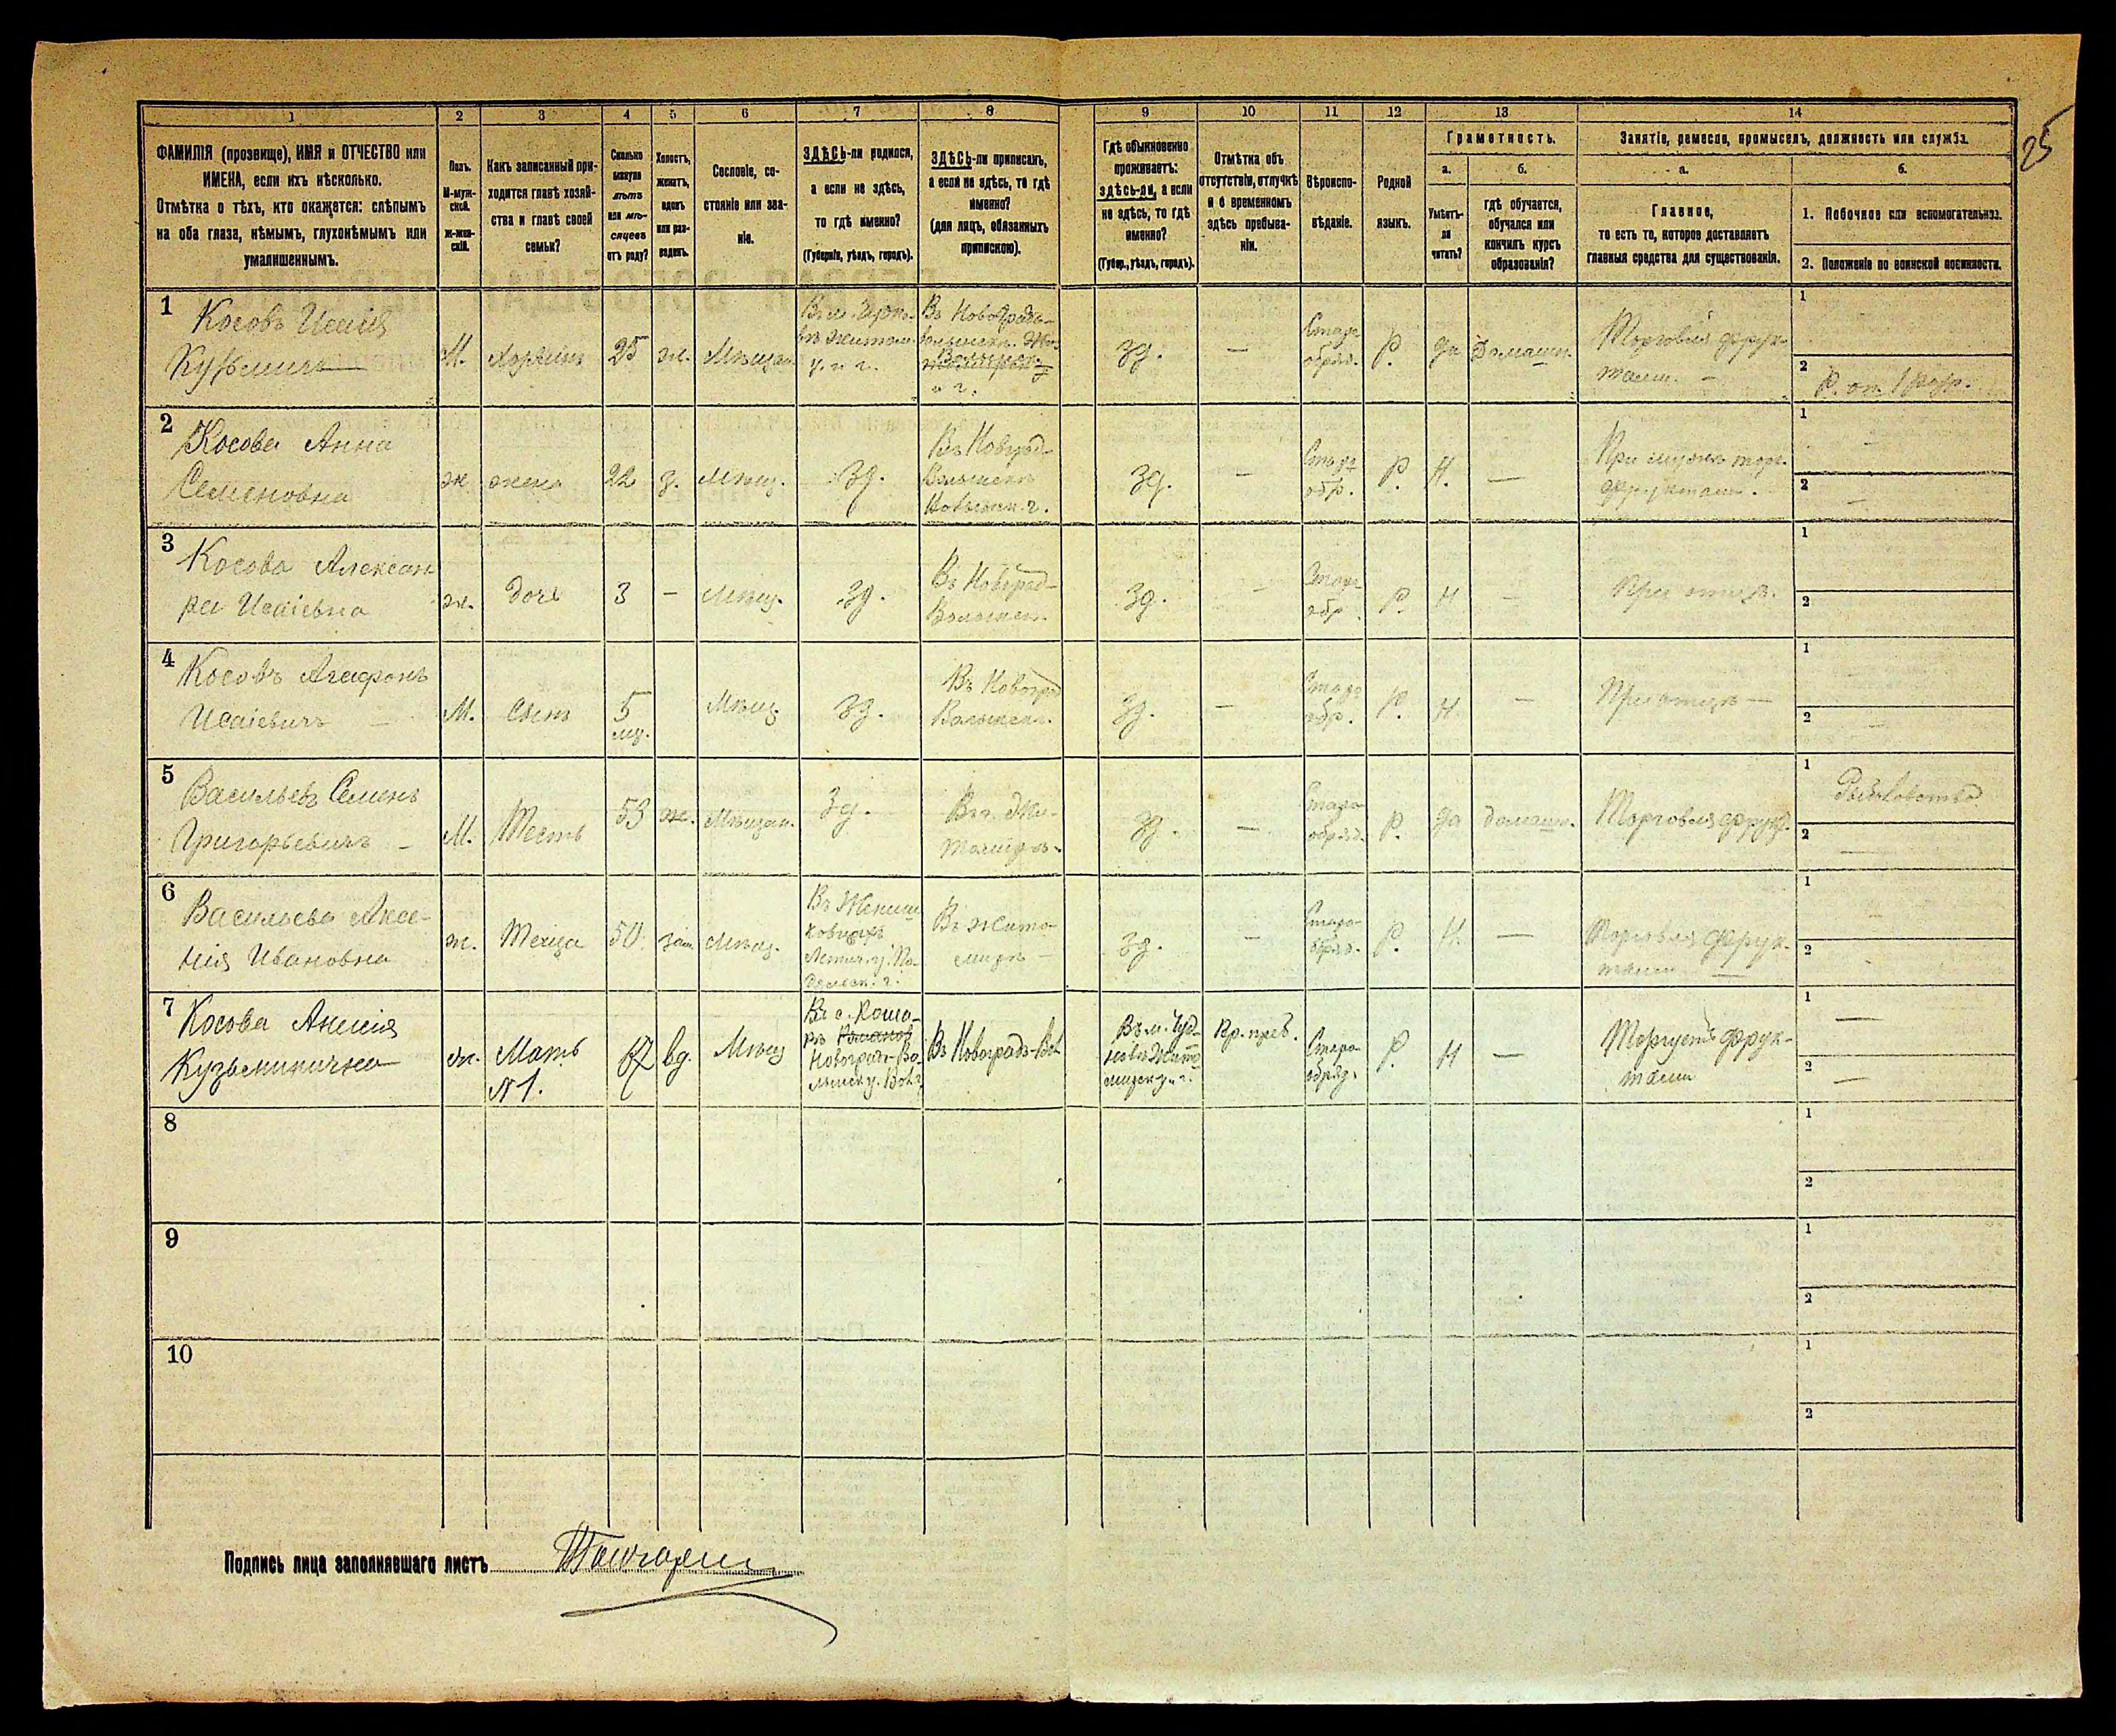 25
1 2 3 4 5 6 7 8 9 10 11 12 13 14
ФАМИЛІЯ (прозвище), ИМЯ и ОТЧЕСТВО или
ИМЕНА, если ихъ нѣсколько.
Отмѣтка о тѣхъ, кто окажется: слѣпымъ
на оба глаза, нѣмымъ, глухонѣмымъ или
умалишеннымъ.
Полъ.
М-муж-
ской.
Ж-жен-
скій.
Какъ записанный при-
ходится главѣ хозяй-
ства и главѣ своей
семьи?
Сколько
минуло
лѣтъ
или мѣ-
сяцевъ
отъ роду?
Холостъ,
женатъ,
вдовъ
или раз-
веденъ.
Сословіе, со-
стояніе или зва-
ніе.
ЗДѢСЬ-ли родился,
а если не здѣсь,
то гдѣ именно?
(Губернія, уѣздъ, городъ).
ЗДѢСЬ-ли приписанъ,
а если не здѣсь, то гдѣ
именно?
(для лицъ, обязанныхъ
припискою).
Гдѣ обыкновенно
проживаетъ:
здѣсь-ли, а если
не здѣсь, то гдѣ
именно?
(Губер., уѣздъ, городъ).
Отмѣтка объ
отсутствіи, отлучкѣ
и о временномъ
здѣсь пребыва-
ніи.
Вѣроиспо-
вѣданіе.
Родной
языкъ.
Грамотность.
а.
Умѣетъ-
ли
читать?
б.
гдѣ обучается,
обучался или
кончилъ курсъ
образованія?
Занятіе, ремесло, промыселъ, должность или служба.
а.
Главное,
то есть то, которое доставляетъ
главныя средства для существованія.
б.
1. Побочное или вспомогательное.
2. Положеніе по воинской повинности.
1
Косовъ Исаія
Кузьмичъ
М. хозяинъ 25 ж. Мѣщан.
у. и г.
Въ Новоградъ-
и г.
зд. — Старо-
обряд. Р. да Домашн.
Торговля фрук-
тами. —
1
2
Р. оп. 1 разр.
2
Косова Анна
Семеновна
ж жена 22 з. Мѣщ. зд.
Въ Новград-
Волынскъ
г.
зд. — Старо
обр. Р. Н. —
При мужѣ торг.
фруктами.
1 —
2 —
3
Косова Алексан
ра Исаіевна
ж. дочь 3 — Мѣщ. зд.
Въ Новград-
Волынск.
зд. — Старо
обр Р. Н —
При отцѣ.
1
2
4
Косовъ Агафонъ
Исаіевичъ —
М. Сынъ 5
мц.
Мѣщ. зд.
Въ Новоград
Волынск.
зд. — Старо
обр. Р. Н —
При отцѣ —
1
2 —
5
Васильевъ Семенъ
Григорьевичъ —
М. Тесть 53 ж. Мѣщан. зд.
Въ г. Жи-
томирѣ.
зд. — Старо
обряд. Р. да домашн.
Торговля фрук.
1
Рыболовство
2 —
6
Васильева Аксе-
нія Ивановна
ж. Теща 50 зам. Мѣщ.
Летич. у. По-
дольск. г.
Въ Жито-
мирѣ —
зд. — Старо-
обряд. Р. Н. —
Торговля фрук-
тами —
1 —
2
7
Косова Анисія
Кузьминична
ж. Мать
№1.
вд. Мѣщ
Новоградъ-Во-
лынск у. Вол. г
Въ Новоградъ-Вол
Въ м. Чуд-
новѣ Жито
мирск у. г.
Вр. преб. Старо
обряд. Р. Н —
Торгуетъ фрук-
тами
1 —
2 —
8
1
2
9
1
2
10
1
2
Подпись лица заполнявшаго листъ